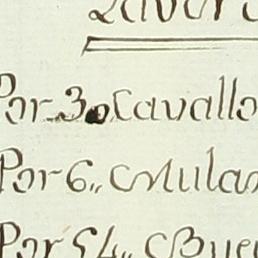 Por 3 Cavallo
Por 6,, Mulas
Por 54,, Buey